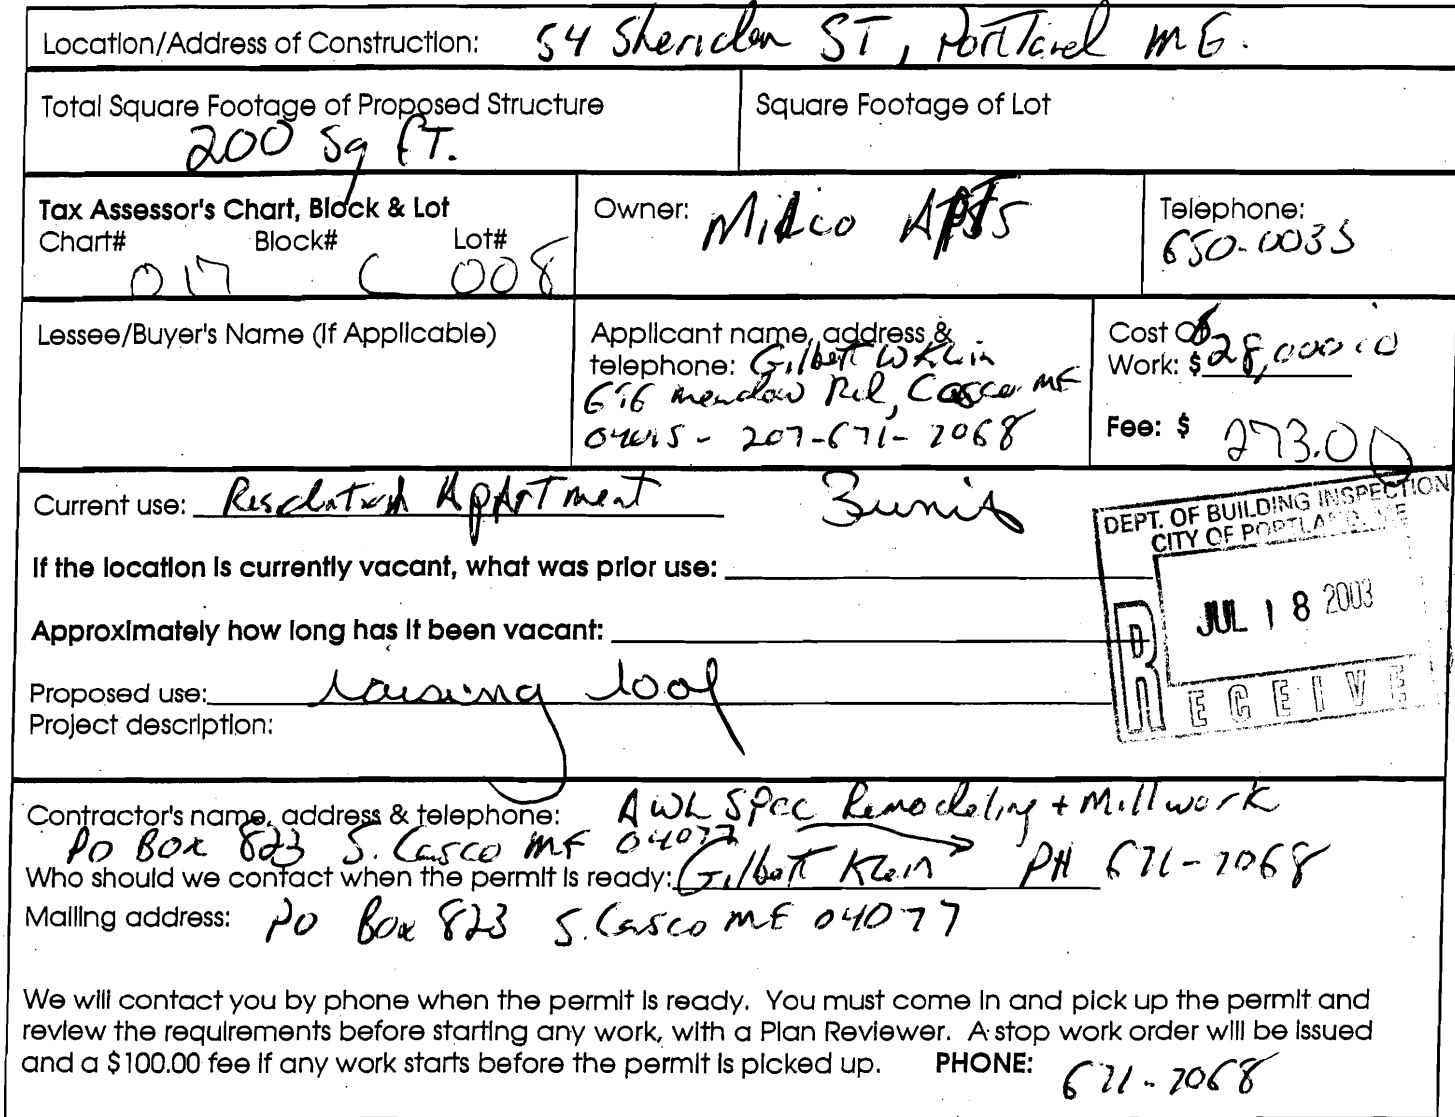 Location/Address of Construction: 54 Sheridan ST, Portland ME.
Total Square Footage of Proposed Structure
200 Sq FT.
Square Footage of Lot
Tax Assessor's Chart, Block & Lot
Chart# Block# Lot#
017 C 008
Owner: Milco APTS
Telephone:
650-0035
Lessee/Buyer's Name (If Applicable)
Applicant name, address &
telephone: Gilbert W Klein
696 Meadow Rd, Casco ME
04015 - 207-671-7068
Cost Of
Work: $ 28,000.00
Fee: $ 273.00
Current use: Appartment 3 units
If the location is currently vacant, what was prior use:
Approximately how long has it been vacant:
Proposed use: raising roof
Project description:
DEPT. OF BUILDING INSPECTION
CITY OF PORTLAND, ME
JUL 18 2003
RECEIVE
Contractor's name, address & telephone: AWL Spec Remodeling + Millwork
PO Box 823 S. Casco ME 04077
Who should we contact when the permit is ready: Gilbert Klein PH 671-7068
Mailing address: PO Box 823 S. Casco ME 04077
We will contact you by phone when the permit is ready. You must come in and pick up the permit and
review the requirements before starting any work, with a Plan Reviewer. A stop work order will be issued
and a $100.00 fee if any work starts before the permit is picked up. PHONE: 671-7068